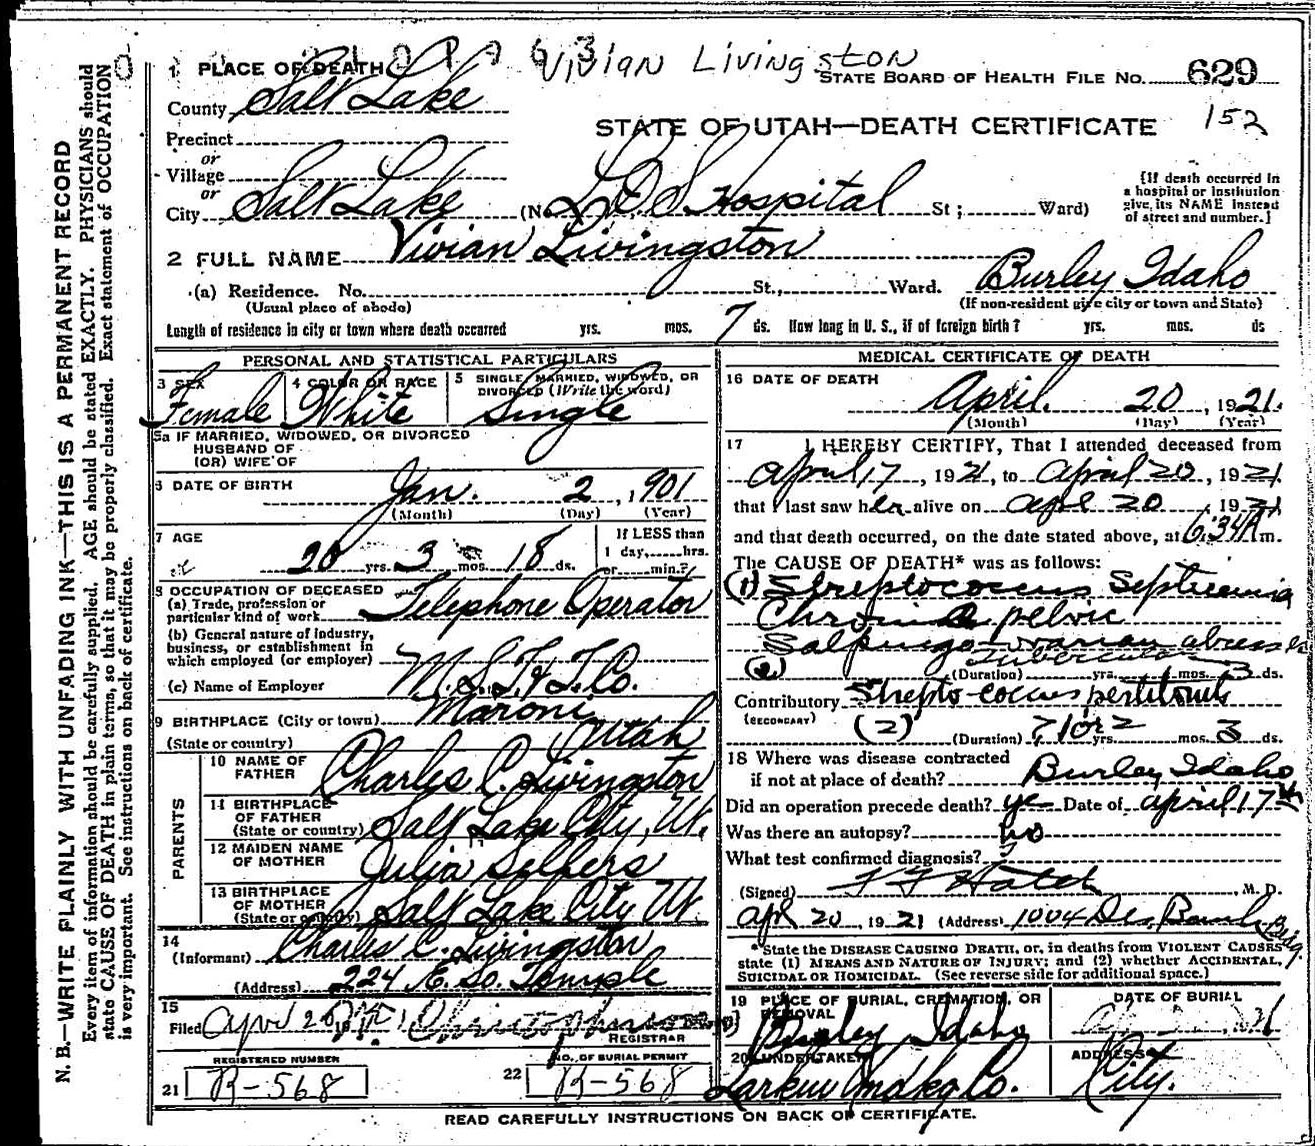 Vivian Livingston
1 PLACE OF DEATH
STATE BOARD OF HEALTH FILE NO. 629
County Salt Lake
152
STATE OF UTAH—DEATH CERTIFICATE
Precinct
or
Village
or
City Salt Lake (No. L D S Hospital St; Ward)
[If death occurred in
a hospital or institution
give its NAME instead
of street and number.]
2 FULL NAME Vivian Livingston
(a) Residence. No. St., Ward. Burley Idaho
(Usual place of abode) (If non-resident give city or town and State)
Length of residence in city or town where death occurred yrs. mos. 7 ds. How long in U. S., if of foreign birth? yrs. mos. ds
PERSONAL AND STATISTICAL PARTICULARS
3 SEX Female
4 COLOR OR RACE White
5 SINGLE, MARRIED, WIDOWED, OR
DIVORCED (Write the word)
Single
5a IF MARRIED, WIDOWED, OR DIVORCED
HUSBAND OF
(OR) WIFE OF
6 DATE OF BIRTH Jan. 2, 1901
(Month) (Day) (Year)
7 AGE 20 yrs. 3 mos. 18 ds.
If LESS than
1 day, hrs.
or min.?
8 OCCUPATION OF DECEASED
(a) Trade, profession or
particular kind of work Telephone Operator
(b) General nature of industry,
business, or establishment in
which employed (or employer)
(c) Name of Employer M. S. T. & T. Co.
9 BIRTHPLACE (City or town) Maroni
(State or country) Utah
PARENTS
10 NAME OF
FATHER Charles C. Livingston
11 BIRTHPLACE
OF FATHER
(State or country) Salt Lake City, Ut.
12 MAIDEN NAME
OF MOTHER Julia Sellers
13 BIRTHPLACE
OF MOTHER
(State or country) Salt Lake City Ut.
14
(Informant) Charles C. Livingston
(Address) 224 E. So. Temple
15
Filed
REGISTRAR
REGISTERED NUMBER
21 R-568
NO. OF BURIAL PERMIT
22 R-568
MEDICAL CERTIFICATE OF DEATH
16 DATE OF DEATH
April. 20, 1921.
(Month) (Day) (Year)
17 I HEREBY CERTIFY, That I attended deceased from
April 17, 1921, to April 20, 1921
that I last saw her alive on Apr 20, 1921
and that death occurred, on the date stated above, at 6:34A m.
The CAUSE OF DEATH* was as follows:
(1) Streptococcus Septicemia
Chronic pelvic
Salpingo-ovarian abscess
(2) Tubercular
(Duration) yrs. mos. 3 ds.
Contributory Strepto coccus peritonitis
(SECONDARY) (2) (Duration) ? 1 or 2 yrs mos. 3 ds.
18 Where was disease contracted
if not at place of death? Burley, Idaho
Did an operation precede death? yes Date of April 17th
Was there an autopsy? no
What test confirmed diagnosis?
(Signed) Hatch, M. D.
Apr 20, 1921 (Address) 1004 Des. Bank Bldg.
*State the DISEASE CAUSING DEATH, or, in deaths from VIOLENT CAUSES,
state (1) MEANS AND NATURE OF INJURY; and (2) whether ACCIDENTAL,
SUICIDAL OR HOMICIDAL. (See reverse side for additional space.)
19 PLACE OF BURIAL, CREMATION, OR
REMOVAL
Burley Idaho
DATE OF BURIAL
20 UNDERTAKER
Larkin Undkg Co.
ADDRESS
City.
READ CAREFULLY INSTRUCTIONS ON BACK OF CERTIFICATE.
N. B.—WRITE PLAINLY WITH UNFADING INK—THIS IS A PERMANENT RECORD
Every item of information should be carefully supplied. AGE should be stated EXACTLY. PHYSICIANS should
state CAUSE OF DEATH in plain terms, so that it may be properly classified. Exact statement of OCCUPATION
is very important. See instructions on back of certificate.